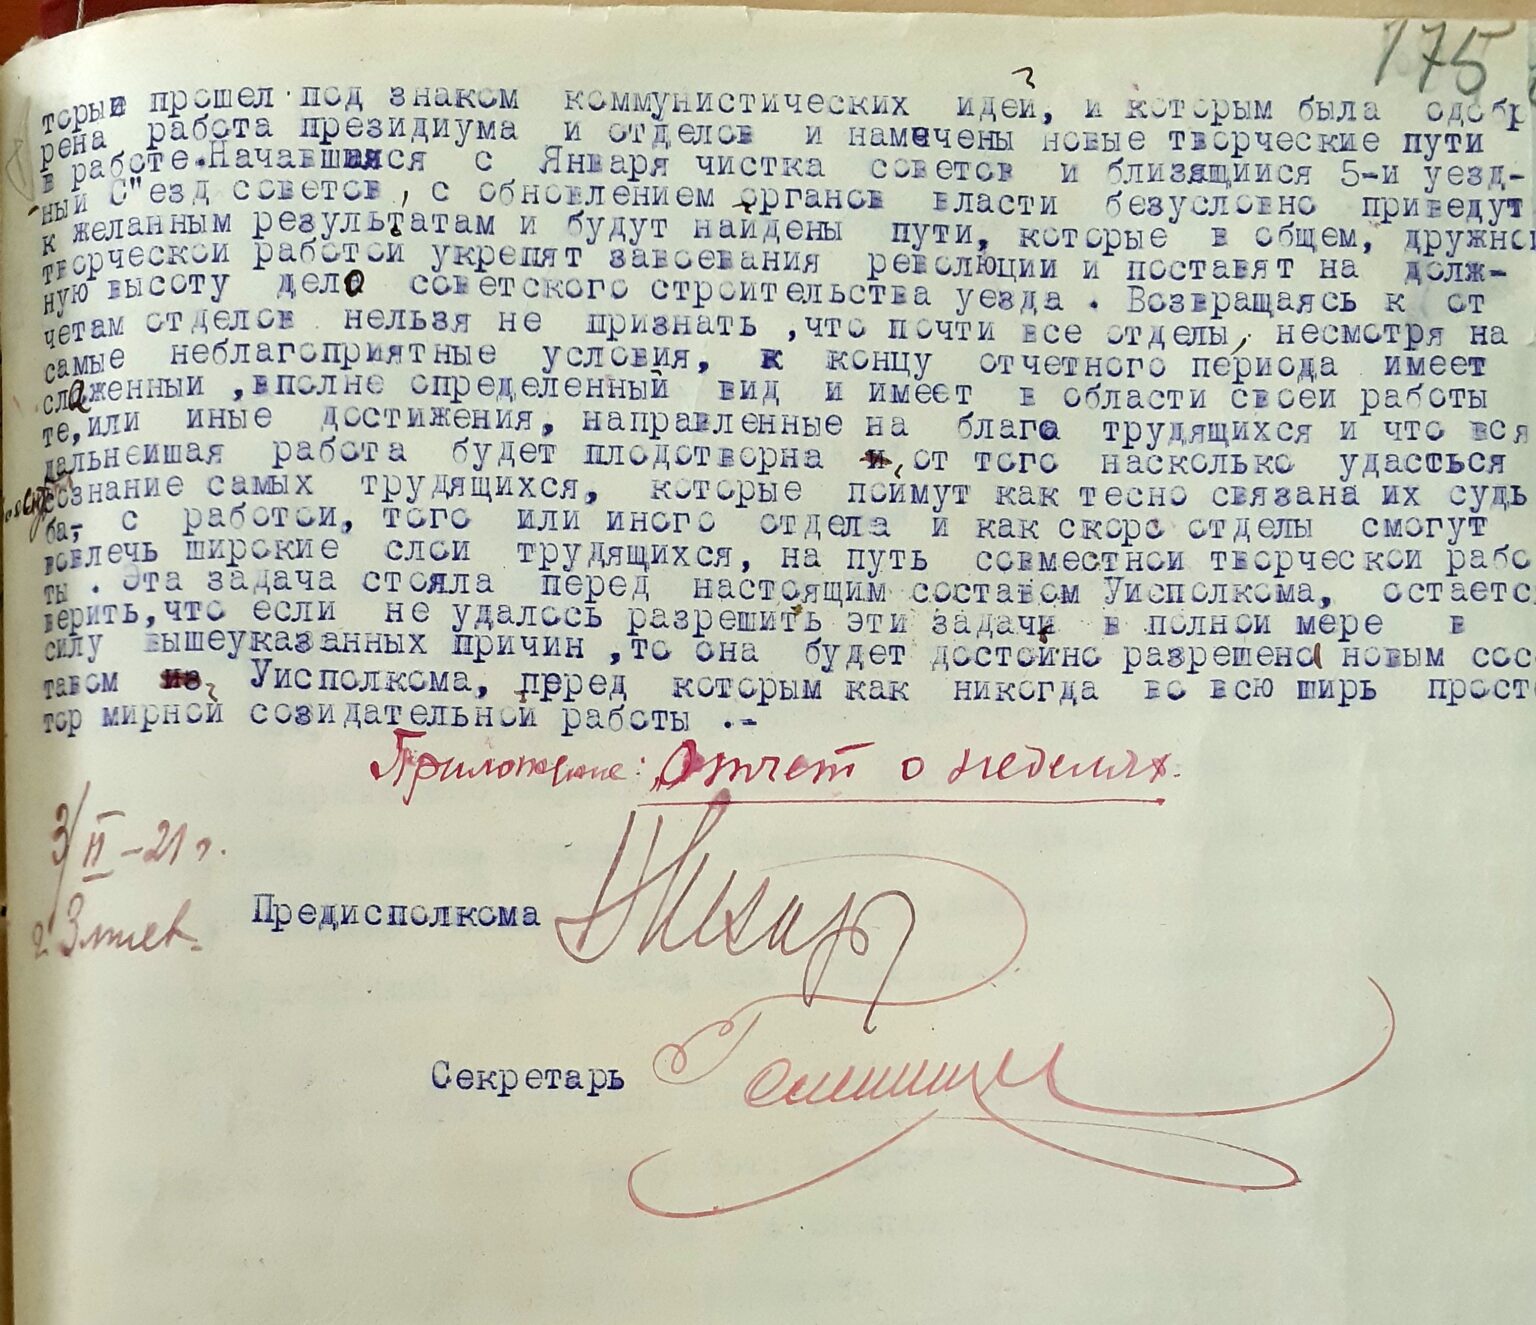 175
торый прошел под знаком коммунистических идей, и которым была одобр
рена работа президиума и отделов и намечены новые творческие пути
в работе. Начавшаяся с Января чистка советов и близящиися 5-и уезд-
ный С"езд советов, с обновлением органов власти безусловно приведут
к желанным результатам и будут найдены пути, которые в общем, дружной
творческой работой укрепят завоевания революции и поставят на долж-
ную высоту дело советского строительства уезда. Возвращаясь к от
четам отделов нельзя не признать, что почти все отделы, несмотря на
самые неблагоприятные условия, к концу отчетного периода имеет
слаженный, вполне определенный вид и имеет в области своей работы
те, или иные достижения, направленные на благо трудящихся и что вся
дальнейшая работа будет плодотворна и, от того насколько удасться
сознание самых трудящихся, которые поймут как тесно связана их судь
ба, с работой, того или иного отдела и как скоро отделы смогут
вовлечь широкие слои трудящихся, на путь совместной творческой рабо
ты. Эта задача стояла перед настоящим составом Уисполкома, остаетс
верить, что если не удалось разрешить эти задачи в полной мере в
силу вышеуказанных причин, то она будет достойно разрешена новым сос
тавом из Уисполкома, перед которым как никогда во всю ширь прост
тор мирной созидательной работы .-
Приложение: Отчет о неделях.
3/II-21 г.
г. Змиев.
Предисполкома
Секретарь